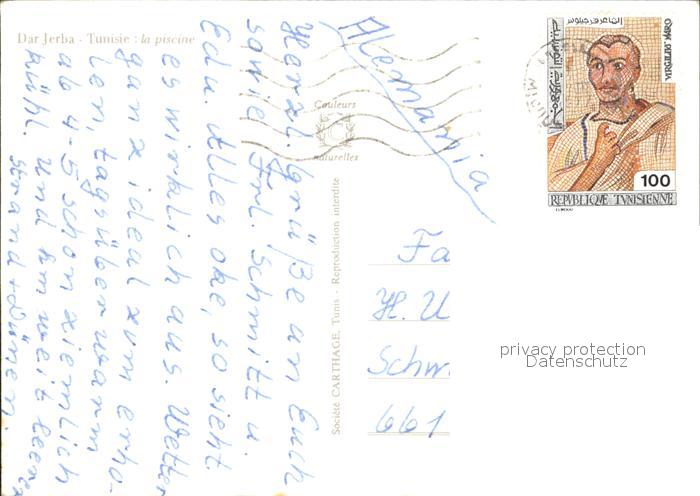 Dar Jerba - Tunisie : la piscine
Alemania
Herzl. Grüße an Euch
sowie Frl. Schmitt u.
Edu. Alles oke, so sieht
es wirklich aus. Wetter
ganz ideal zum erho-
len, tagsüber warm
ab 4-5 schon ziemlich
kühl. Und km weit leerer
Strand + Dünen
Couleurs
naturelles
Société CARTHAGE, Tunis - Reproduction interdite
100
REPVBLIQVE TVNISIENNE
Fa
H. U
Schw
661
privacy protection
Datenschutz